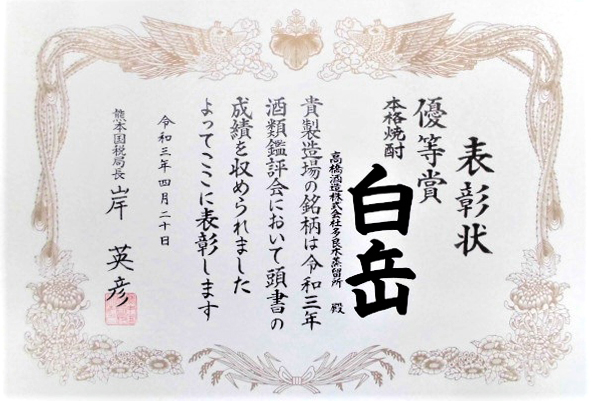 表彰状
優等賞
本格焼酎
白岳
高橋酒造株式会社多良木蒸留所 殿
貴製造場の銘柄は令和三年
酒類鑑評会において頭書の
成績を収められました
よってここに表彰します
令和三年四月二十日
熊本国税局長 岸 英彦